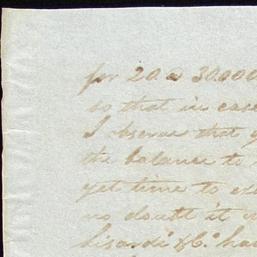 for 20 @ 30.000
so that in case
I observe that y
the balance to
yet time to ex
no doubt it w
Lizardi & Co. hav